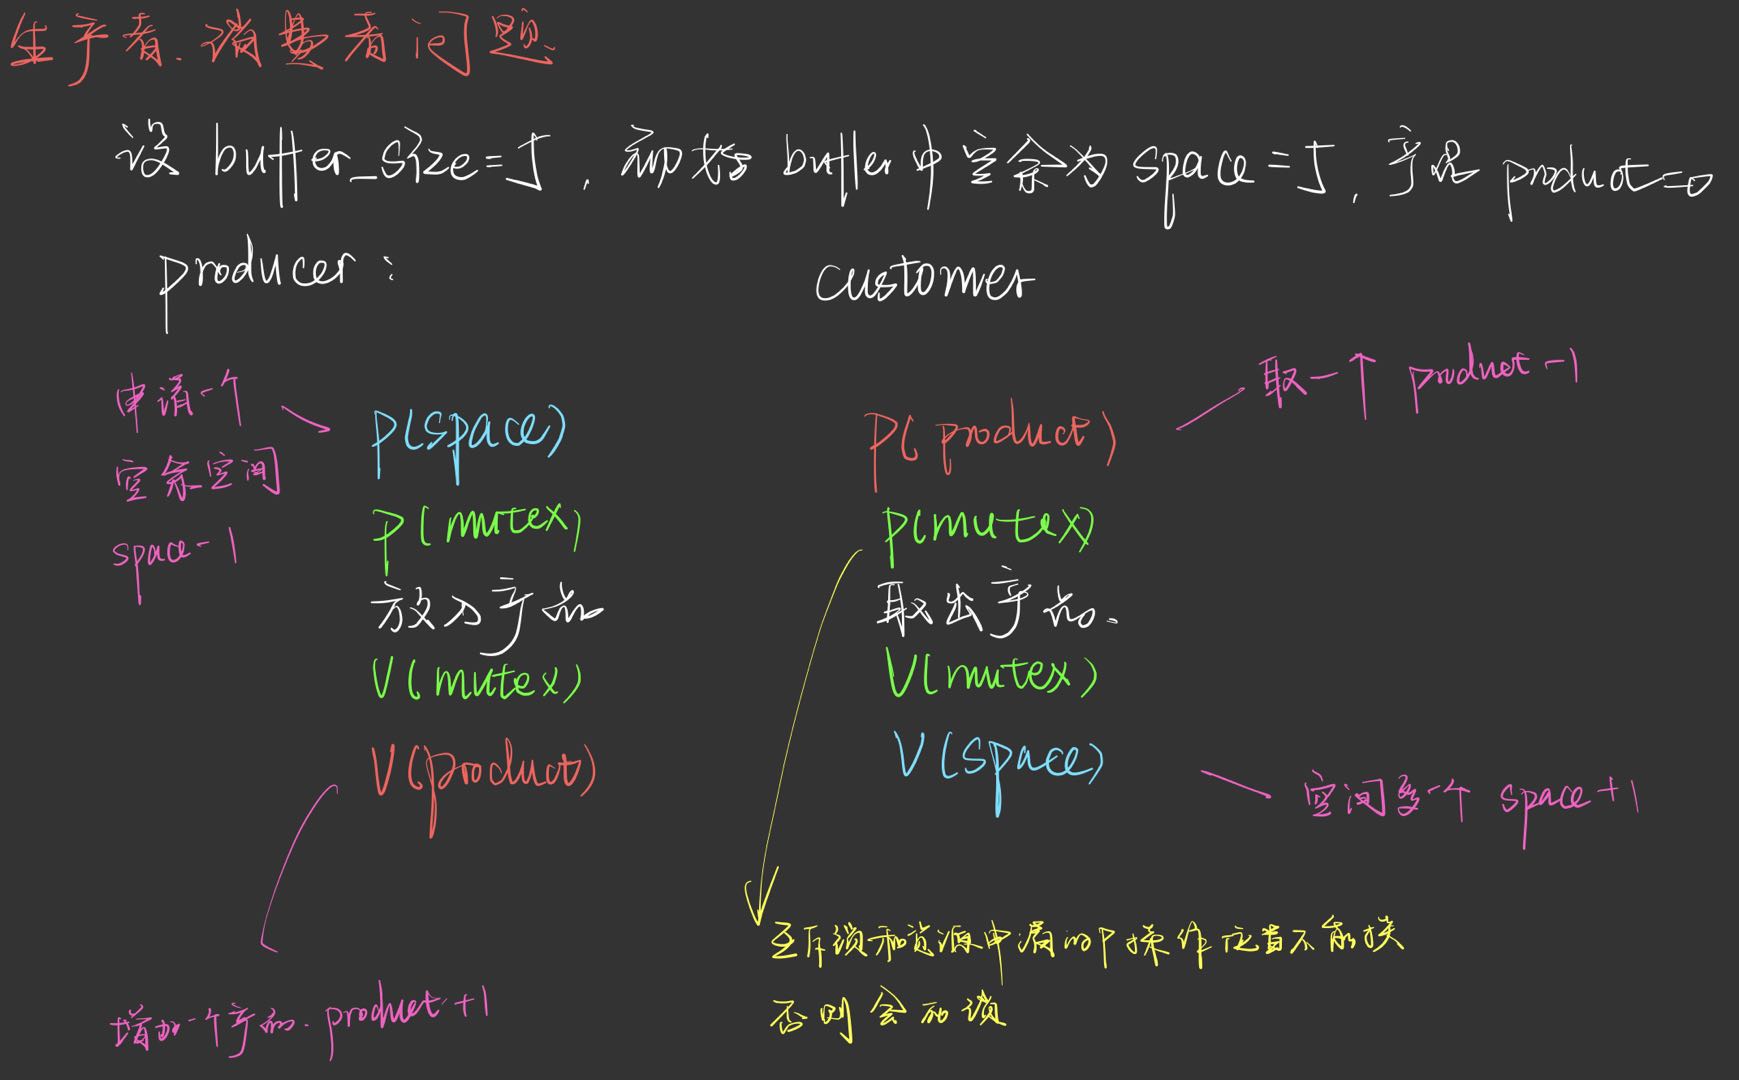 生产者.消费者问题.
设 buffer_size=5, 初始 buffer中空余为 space=5, 产品 product=0
producer:
customer
申请一个
空余空间
space-1
P(space)
P(mutex)
放入产品
V(mutex)
V(product)
增加一个产品. product+1
取一个 product-1
P(product)
P(mutex)
取出产品.
V(mutex)
V(space)
空间多一个 space+1
互斥锁和资源申请的P操作位置不能换
否则会死锁